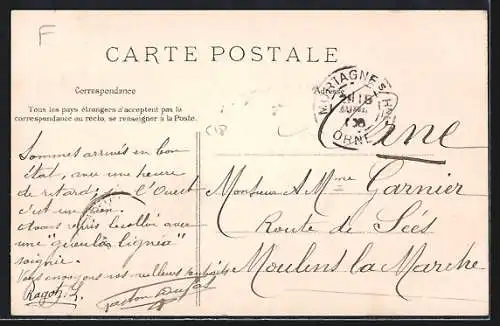 F
CARTE POSTALE
Correspondance
Adresse
Tous les pays étrangers n'acceptent pas la
correspondance au recto, se renseigner à la Poste.
MORTAGNE S/H
ORNE
Orne
Sommes arrivés en bon
état, avec une heure
de retard, l'Ouest
c'est un rien.
Avons repris avec
une
soignée.
Vous envoyons nos meilleurs
Monsieur & Mme Garnier
Route de Sées
Moulins la Marche